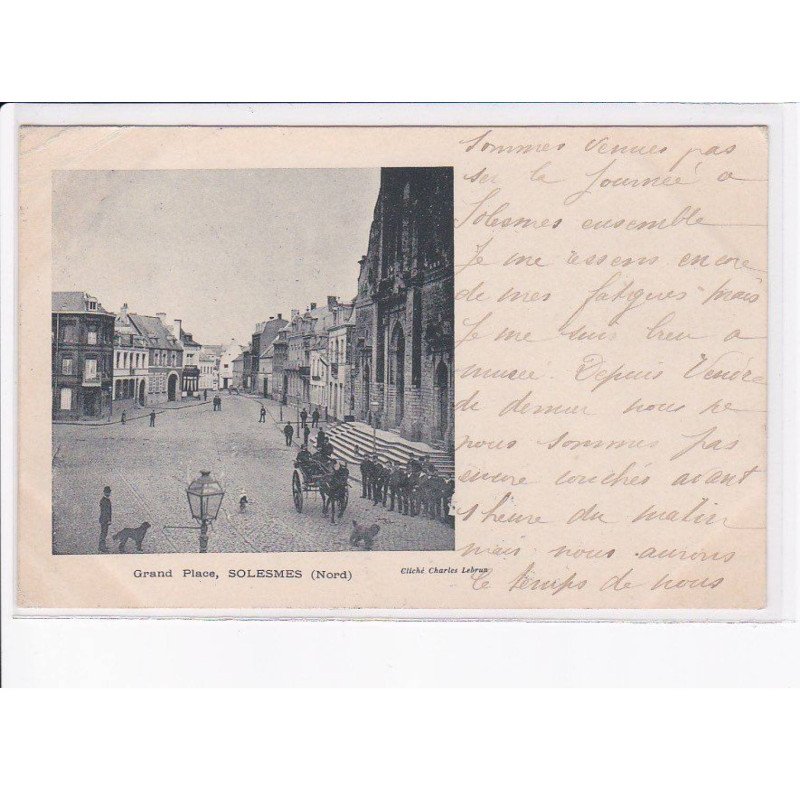 Sommes venues pas
la Journée a
Solesmes ensemble
Je me ressens encore
de mes fatigues mais
Je me suis bien a
musée. Depuis
de nous ne
nous sommes pas
encore couchés avant
1 heure du matin
mais nous aurons
le temps de nous
Grand Place, SOLESMES (Nord)
Cliché Charles Lebrun